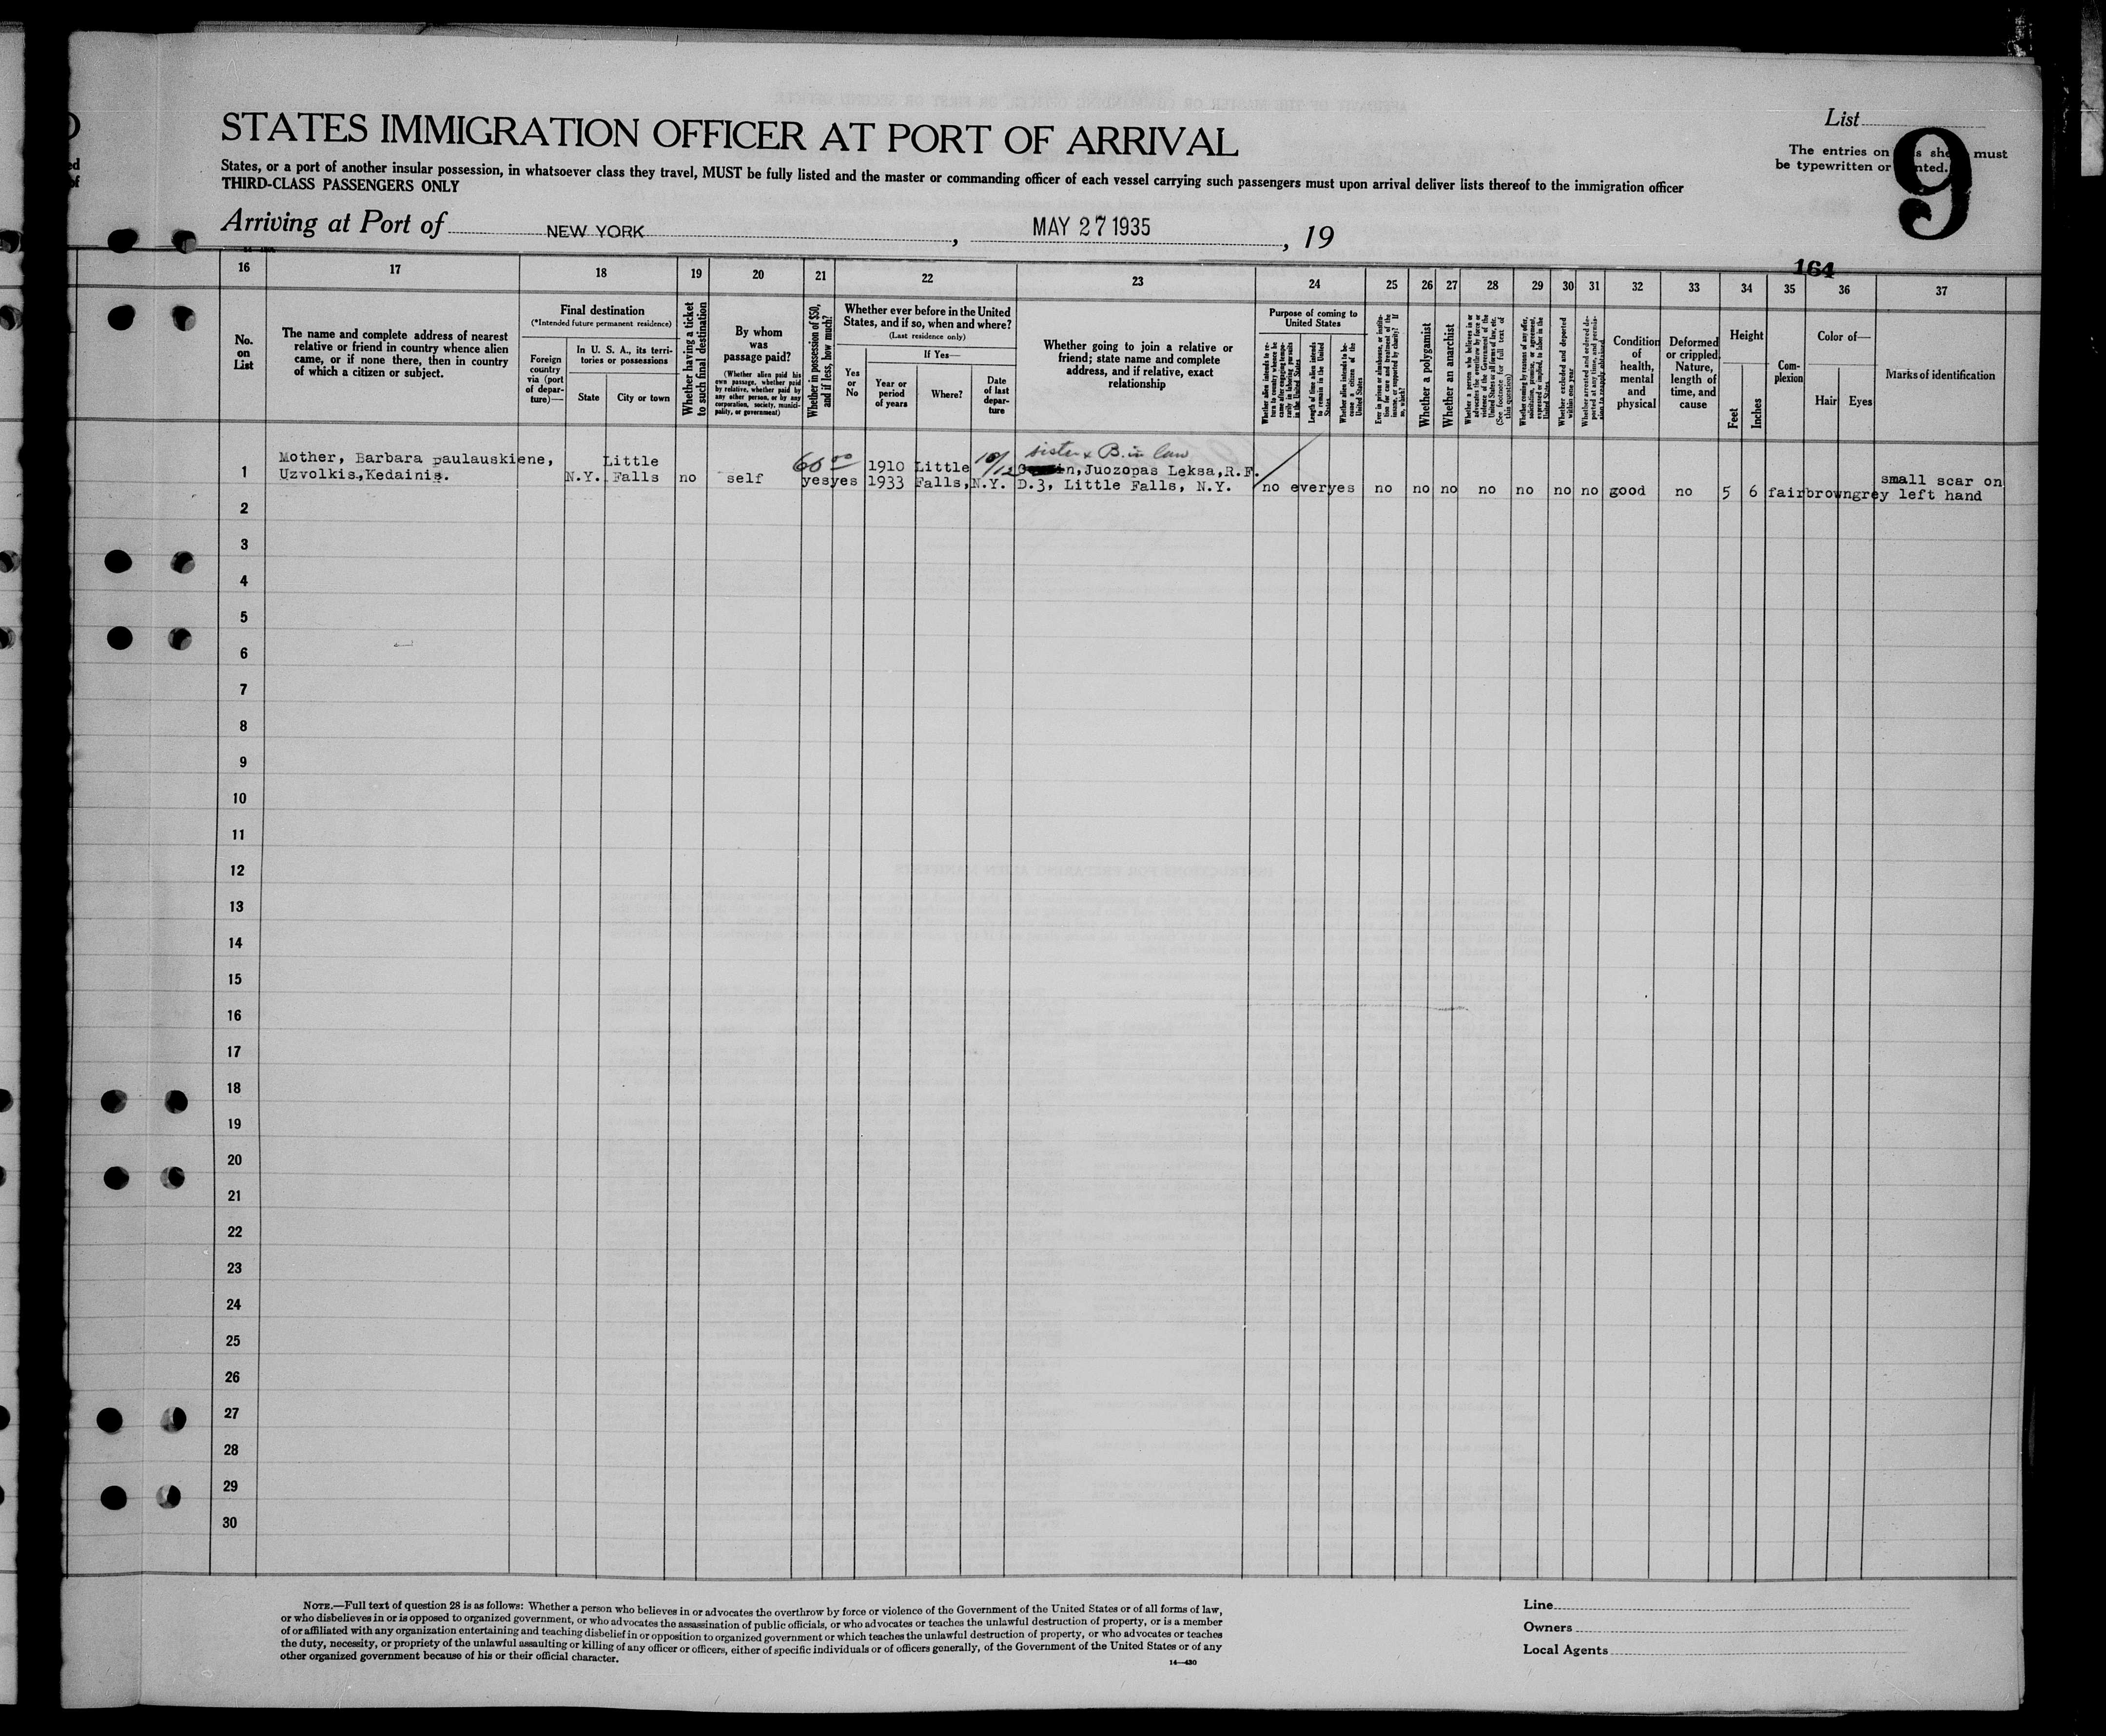 STATES IMMIGRATION OFFICER AT PORT OF ARRIVAL
List
9
The entries on must
be typewritten or
States, or a port of another insular possession, in whatsoever class they travel, MUST be fully listed and the master or commanding officer of each vessel carrying such passengers must upon arrival deliver lists thereof to the immigration officer
THIRD-CLASS PASSENGERS ONLY
Arriving at Port of NEW YORK, MAY 27 1935, 19
164
16 17 18 19 20 21 22 23 24 25 26 27 28 29 30 31 32 33 34 35 36 37
No. on List
The name and complete address of nearest
relative or friend in country whence alien
came, or if none there, then in country
of which a citizen or subject.
Final destination
(*Intended future permanent residence)
Foreign
country
via (port
of depar-
ture)—
In U. S. A., its terri-
tories or possessions
State
City or town
Whether having a ticket
to such final destination
By whom
was
passage paid?
(Whether alien paid his
own passage, whether paid
by relative, whether paid by
any other person, or by any
corporation, society, munici-
pality, or government)
Whether in possession of $50,
and if less, how much?
Whether ever before in the United
States, and if so, when and where?
(Last residence only)
Yes
or
No
If Yes—
Year or
period
of years
Where?
Date
of last
depar-
ture
Whether going to join a relative or
friend; state name and complete
address, and if relative, exact
relationship
Purpose of coming to
United States
Length of time alien intends
to remain in the United
States
Whether alien intends to be-
come a citizen of the
United States
Whether a polygamist
Whether an anarchist
Whether excluded and deported
within one year
Condition
of
health,
mental
and
physical
Deformed
or crippled.
Nature,
length of
time, and
cause
Height
Feet
Inches
Com-
plexion
Color of—
Hair
Eyes
Marks of identification
sister & B. in law
Mother, Barbara paulauskiene, Little 60 00 1910 Little 10/12 in, Juozopas Leksa, R.F.
1 Uzvolkis, Kedainis. N.Y. Falls no self yes yes 1933 Falls, N.Y. D.3, Little Falls, N.Y. no ever yes no no no no no no no good no 5 6 fair brown grey small scar on
left hand
2
3
4
5
6
7
8
9
10
11
12
13
14
15
16
17
18
19
20
21
22
23
24
25
26
27
28
29
30
NOTE.—Full text of question 28 is as follows: Whether a person who believes in or advocates the overthrow by force or violence of the Government of the United States or of all forms of law,
or who disbelieves in or is opposed to organized government, or who advocates the assassination of public officials, or who advocates or teaches the unlawful destruction of property, or is a member
of or affiliated with any organization entertaining and teaching disbelief in or opposition to organized government or which teaches the unlawful destruction of property, or who advocates or teaches
the duty, necessity, or propriety of the unlawful assaulting or killing of any officer or officers, either of specific individuals or of officers generally, of the Government of the United States or of any
other organized government because of his or their official character.
14—430
Line
Owners
Local Agents